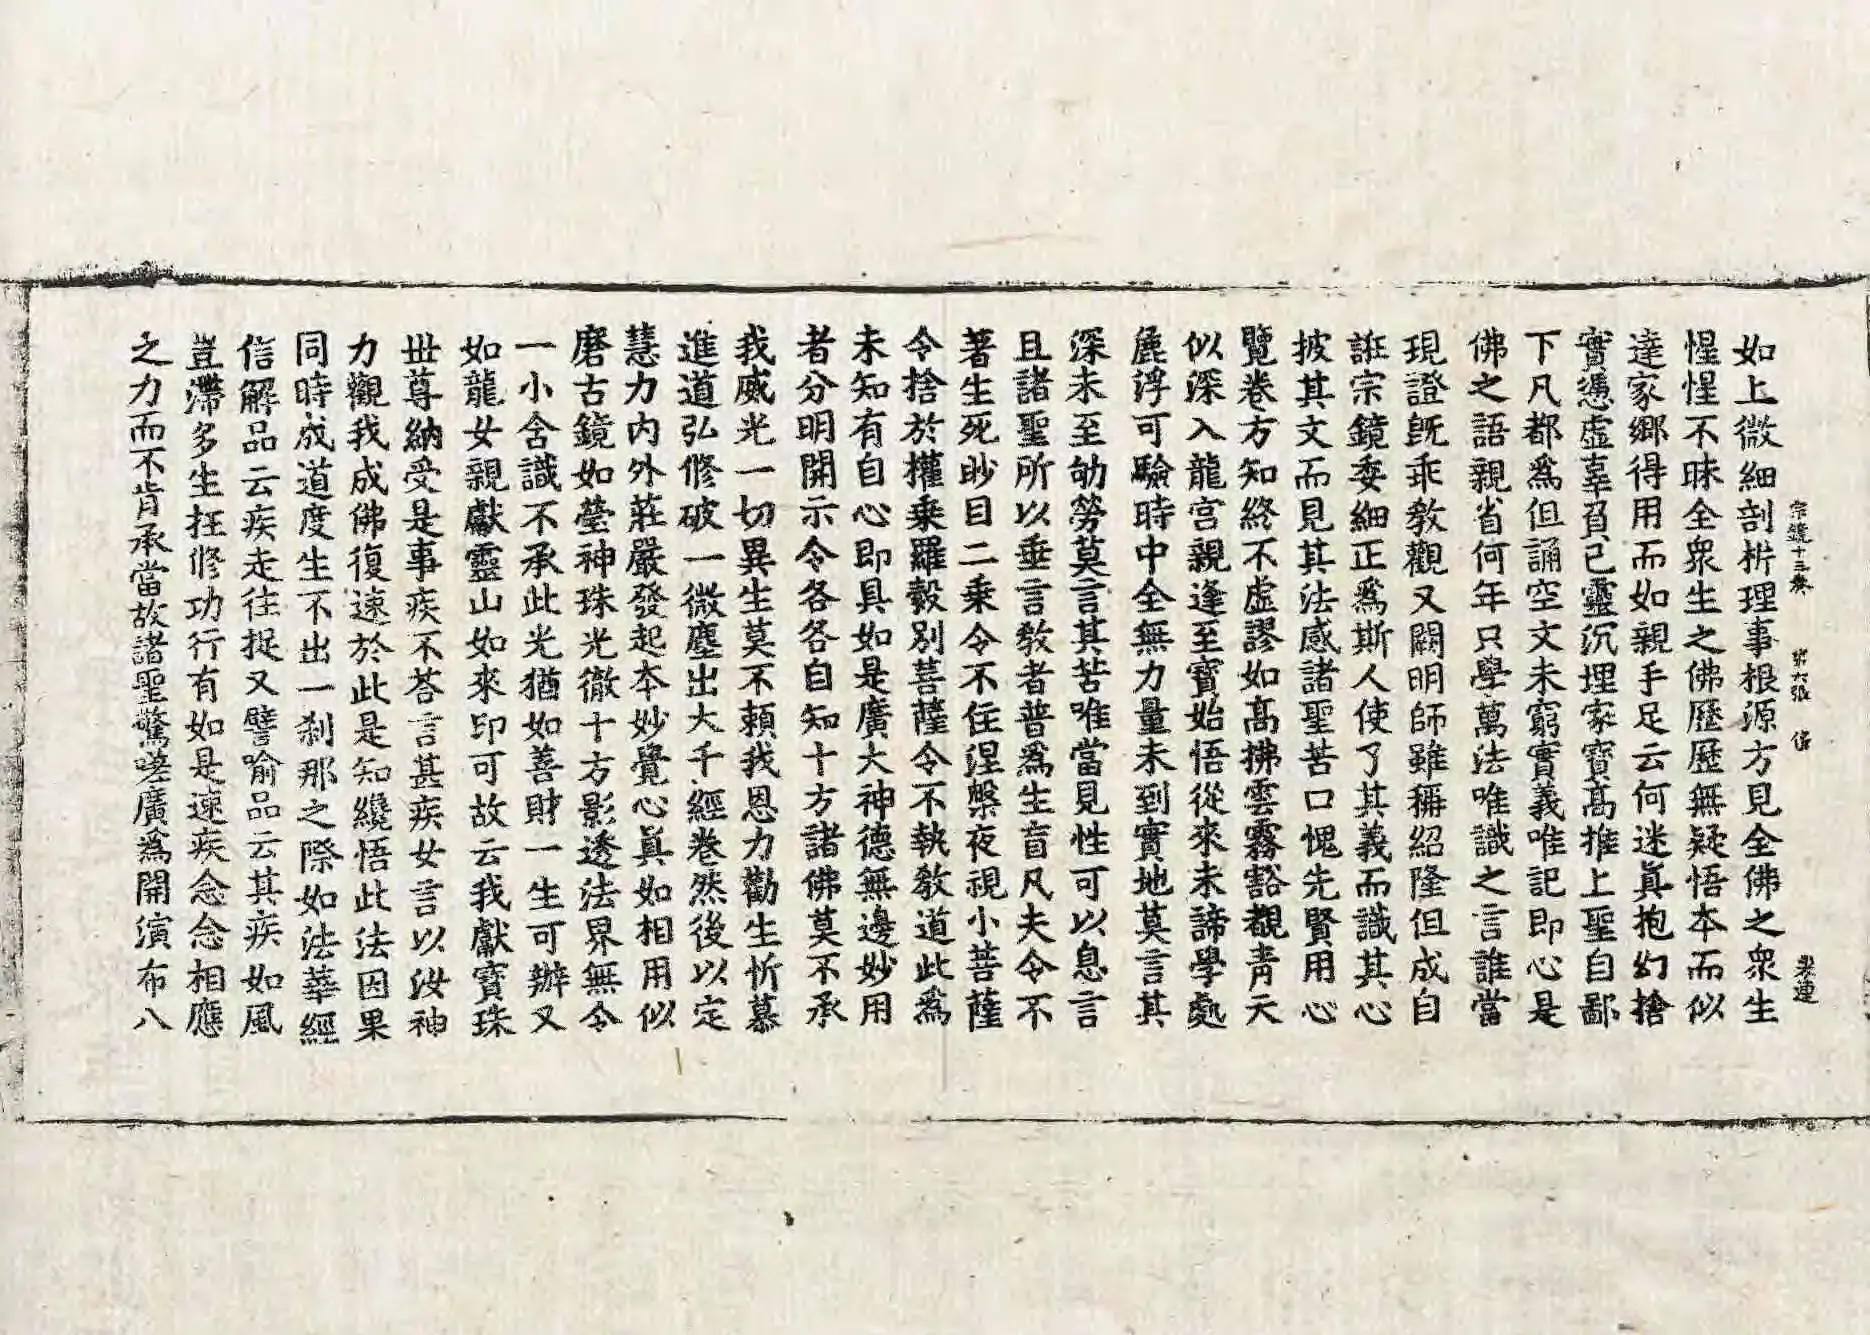 宗鏡十三卷 第六張
如上微細剖枡理事根源方見全佛之衆生
惺惺不昧全衆生之佛歷歷無疑悟本而似
達家鄉得用而如親手足云何迷眞抱幻捨
實憑虛辜負己靈沉埋家寶高推上聖自鄙
下凡都爲但誦空文未窮實義唯記即心是
佛之語親省何年只學萬法唯識之言誰當
現證旣乖教觀又闕明師雖稱紹隆但成自
誑宗鏡委細正爲斯人使了其義而識其心
披其文而見其法感諸聖苦口愧先賢用心
覽卷方知終不虛謬如高拂雲霧豁覩靑天
似深入龍宮親逢至寶始悟從來未諦學處
麁浮可驗時中全無力量未到實地莫言其
深未至劬勞莫言其苦唯當見性可以息言
且諸聖所以垂言教者普爲生盲凡夫令不
著生死眇目二乘令不住涅槃夜視小菩薩
令捨於權乘羅縠別菩薩令不執教道此爲
未知有自心即具如是廣大神德無邊妙用
者分明開示令各各自知十方諸佛莫不承
我威光一切異生莫不頼我恩力勸生忻慕
進道弘修破一微塵出大千經卷然後以定
慧力內外莊嚴發起本妙覺心眞如相用似
磨古鏡如瑩神珠光徹十方影透法界無令
一小含識不承此光猶如善財一生可辦又
如龍女親獻靈山如來印可故云我獻寶珠
世尊納受是事疾不荅言甚疾女言以汝神
力觀我成佛復速於此是知纔悟此法因果
同時成道度生不出一刹那之際如法華經
信解品云疾走往捉又譬喻品云其疾如風
豈滯多生抂修功行有如是速疾念念相應
之力而不肯承當故諸聖驚嗟廣爲開演布八